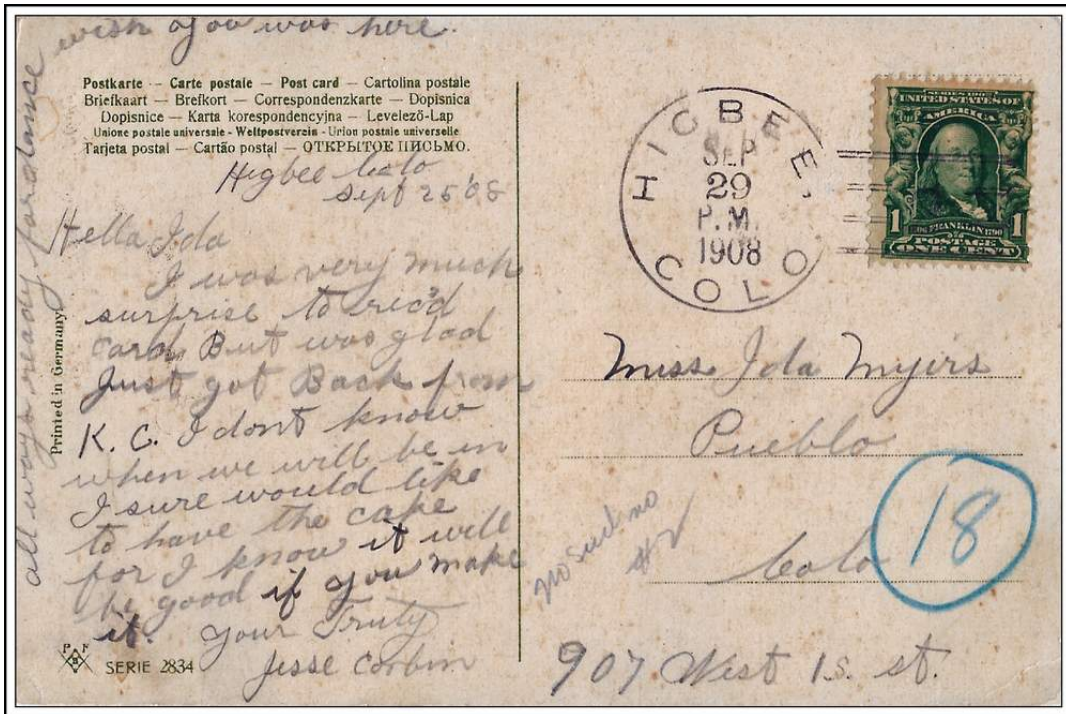 all ways ready for dance
wish you was here.
Postkarte — Carte postale — Post card — Cartolina postale
Briefkaart — Brefkort — Correspondenzkarte — Dopisnica
Dopisnice — Karta korespondencyjna — Levelező-Lap
Unione postale universale - Weltpostverein - Union postale universelle
Tarjeta postal — Cartão postal — ОТКРЫТОЕ ПИСЬМО.
Higbee Colo
Sept 25 '08
Hello Ida
I was very much
surprise to rec'd
card. But was glad
Just got Back from
K. C. I dont know
when we will be in
I sure would like
to have the cake
for I know it will
be good if you make
it. Your Truly
Jesse Corbin
Printed in Germany
P F B
SERIE 2834
HIGBEE,
SEP
29
P.M.
1908
COLO
SERIES 1902
UNITED STATES OF
AMERICA
1706 FRANKLIN 1790
1 POSTAGE 1
ONE CENT
Miss Ida Myirs
Pueblo
Colo
18
no such no
907 West 1s. st.